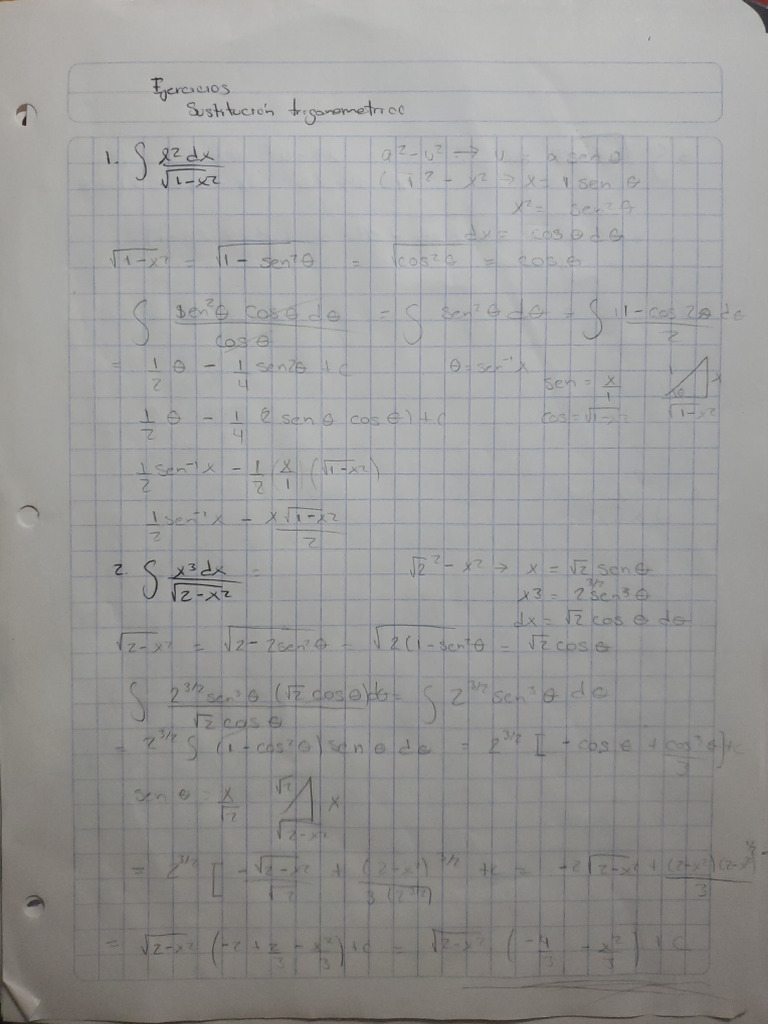 Ejercicios
Sustitución trigonometrica
1. ∫ x² dx / √1-x²
a² - u² → u = a sen θ
1² - x² → x = 1 sen θ
x² = sen² θ
dx = cos θ d θ
√1-x² = √1 - sen² θ = √cos² θ = cos θ
∫ sen² θ cos θ d θ / cos θ = ∫ sen² θ d θ = ∫ 1 - cos 2θ / 2 d θ
= 1/2 θ - 1/4 sen 2θ + C
θ = sen⁻¹ x
sen = x/1
cos = √1-x²
1 x θ √1-x²
1/2 θ - 1/4 (2 sen θ cos θ) + C
1/2 sen⁻¹ x - 1/2 (x/1 (√1-x²)
1/2 sen⁻¹ x - x √1-x² / 2
2. ∫ x³ dx / √2-x² =
√2² - x² → x = √2 sen θ
x3 = 2^3/2 sen³ θ
dx = √2 cos θ d θ
√2-x² = √2 - 2 sen² θ = √2(1 - sen² θ = √2 cos θ
∫ 2^3/2 sen³ θ (√2 cos θ) d θ / √2 cos θ = ∫ 2^3/2 sen³ θ d θ
= 2^3/2 ∫ (1 - cos² θ) sen θ d θ = 2^3/2 [ - cos θ + cos³ θ / 3 ] + C
sen θ = x/√2
√2 x √2-x²
= 2^3/2 [ - √2-x² / √2 + (2-x²)^3/2 / 3 (2^3/2) + C = -2 √2-x² + (2-x²)(2-x²)^1/2 / 3
= √2-x² (-2 + 2/3 - x²/3) + C = √2-x² (-4/3 - x²/3) + C